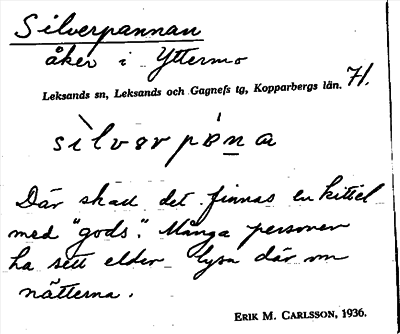 Silverpannan
åker i Yttermo
71.
Leksands sn, Leksands och Gagnefs tg, Kopparbergs län.
sìlvərpána
Där skall det finnas en kittel
med "gods". Många personer
ha sett elden lysa där om
nätterna.
ERIK M. CARLSSON, 1936.